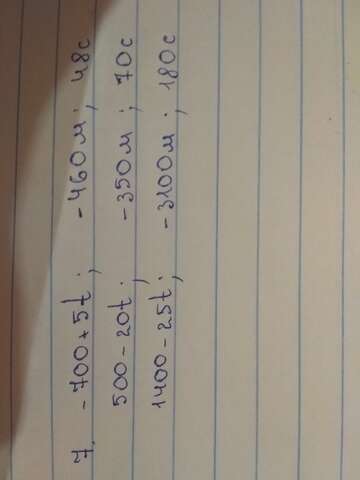 7. -700+5t; -460м; 48с
500-20t; -350м; 70с
1400-25t; -3100м; 180с